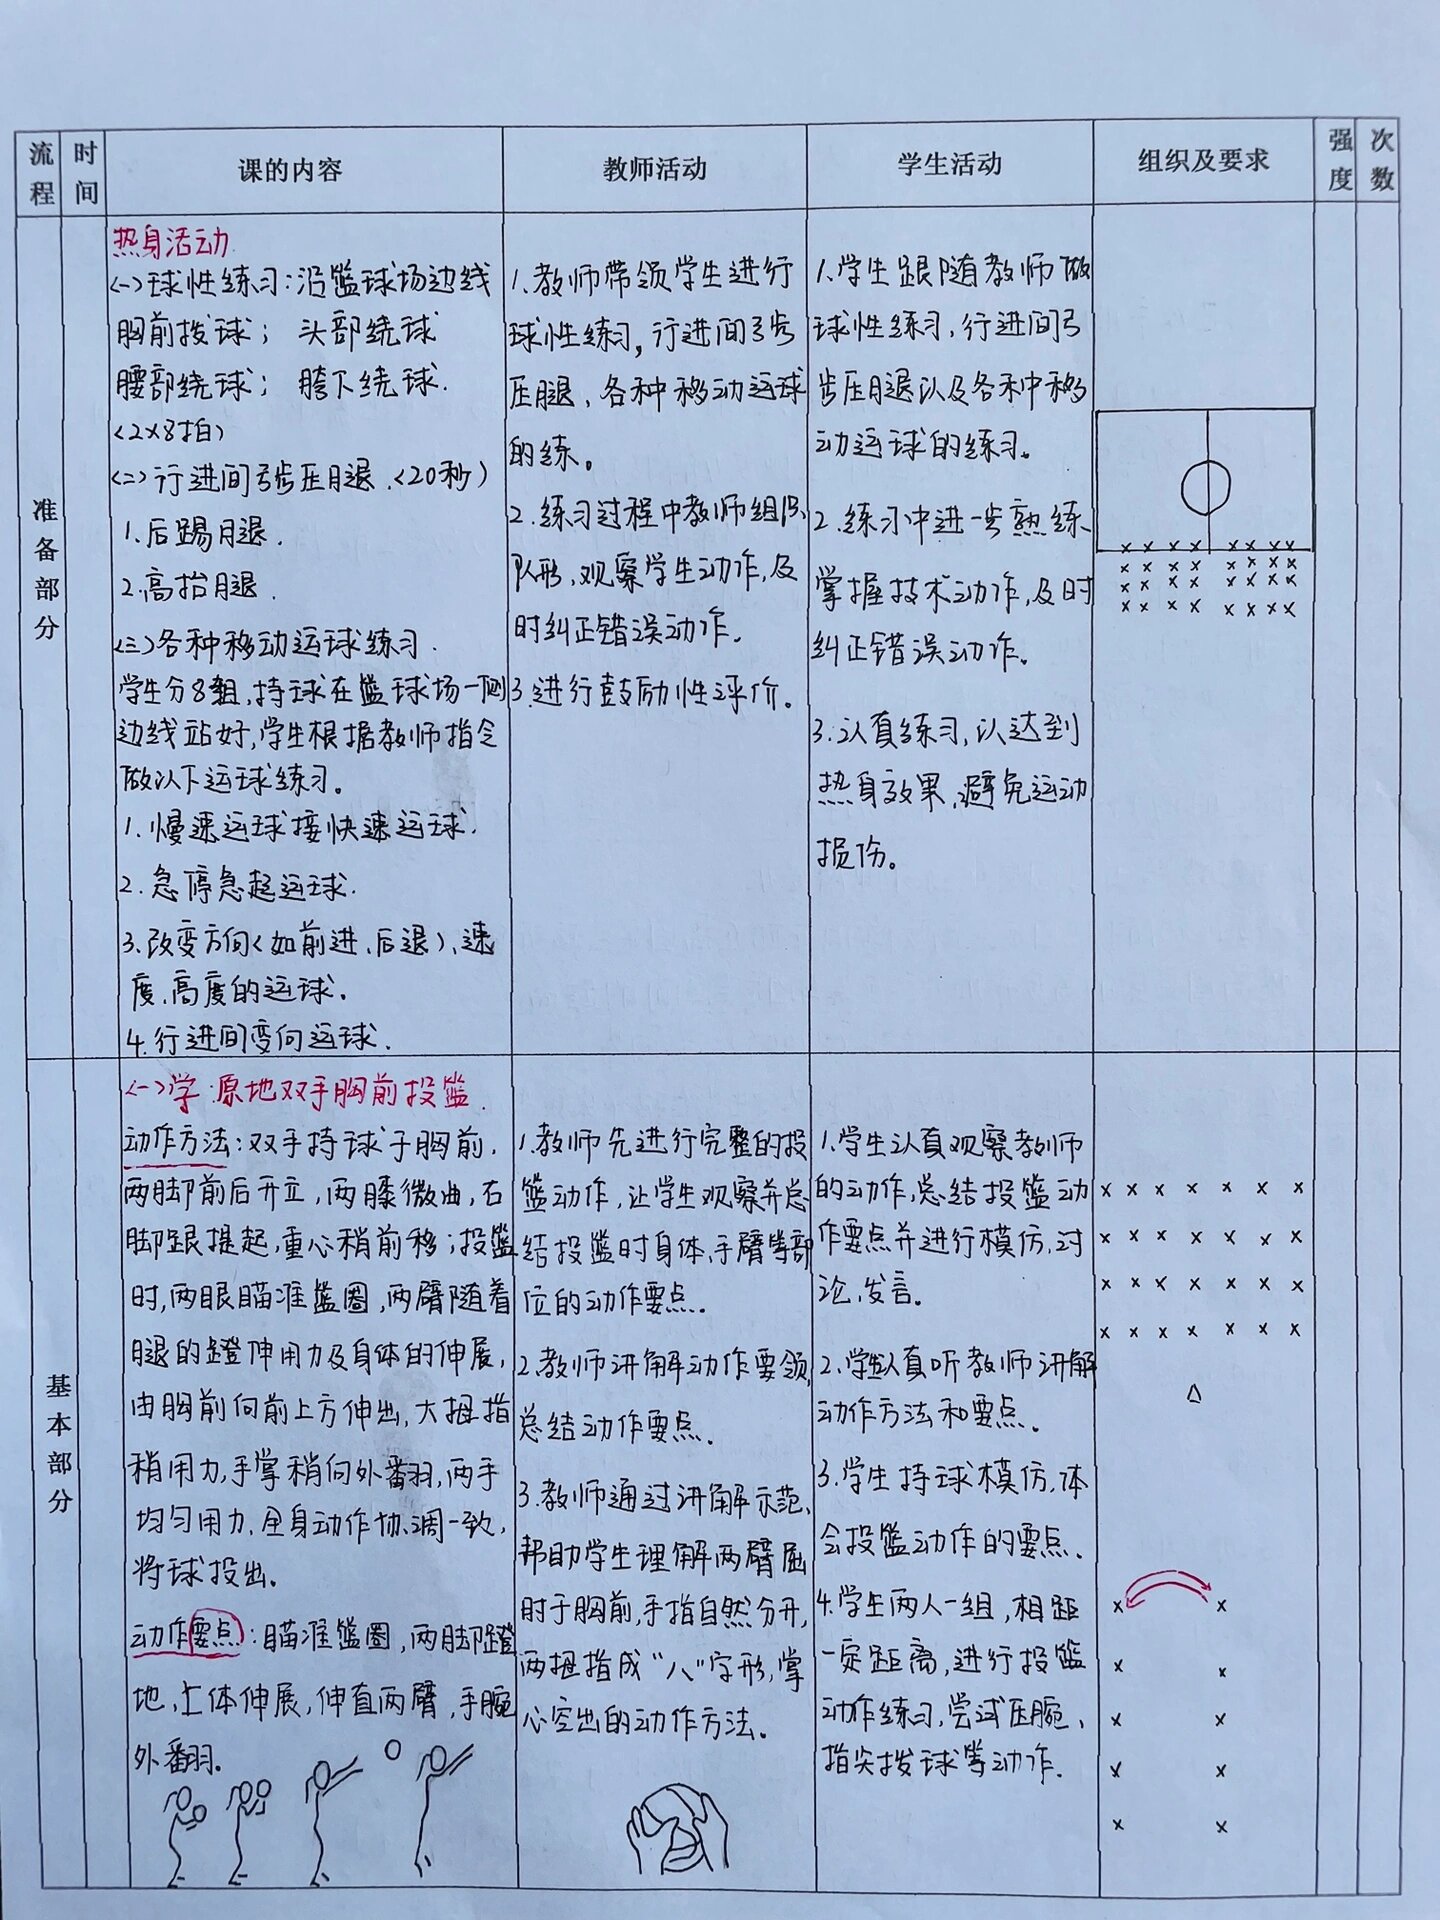 流程
时间
课的内容
教师活动
学生活动
组织及要求
强度
次数
准备部分
热身活动.
<一>球性练习:沿篮球场边线
胸前拨球; 头部绕球
腰部绕球; 胯下绕球.
<2×8拍>
<二>行进间弓步压腿.<20秒>
1.后踢腿.
2.高抬腿.
<三>各种移动运球练习.
学生分8组,持球在篮球场一侧
边线站好,学生根据教师指令
做以下运球练习。
1.慢速运球接快速运球.
2.急停急起运球.
3.改变方向<如前进、后退>、速
度、高度的运球.
4.行进间变向运球.
1.教师带领学生进行
球性练习,行进间弓步
压腿、各种移动运球
的练。
2.练习过程中教师组织
队形,观察学生动作,及
时纠正错误动作。
3.进行鼓励性评价。
1.学生跟随教师做
球性练习,行进间弓
步压腿以及各种移
动运球的练习。
2.练习中进一步熟练
掌握技术动作,及时
纠正错误动作。
3.认真练习,以达到
热身效果,避免运动
损伤。
基本部分
<一>学:原地双手胸前投篮.
动作方法:双手持球于胸前,
两脚前后开立,两膝微曲,右
脚跟提起,重心稍前移;投篮
时,两眼瞄准篮圈,两臂随着
腿的蹬伸用力及身体的伸展,
由胸前向前上方伸出,大拇指
稍用力,手掌稍向外翻,两手
均匀用力,全身动作协调一致,
将球投出。
动作要点:瞄准篮圈,两脚蹬
地,上体伸展,伸直两臂,手腕
外翻。
1.教师先进行完整的投
篮动作,让学生观察并总
结投篮时身体,手臂等部
位的动作要点。
2.教师讲解动作要领,
总结动作要点。
3.教师通过讲解示范,
帮助学生理解两臂屈
肘于胸前,手指自然分开,
两拇指成“八”字形,掌
心空出的动作方法。
1.学生认真观察教师
的动作,总结投篮动
作要点并进行模仿,讨
论,发言。
2.学生认真听教师讲解
动作方法和要点。
3.学生持球模仿,体
会投篮动作的要点.
4.学生两人一组,相距
一定距离,进行投篮
动作练习,尝试压腕,
指尖拨球等动作.